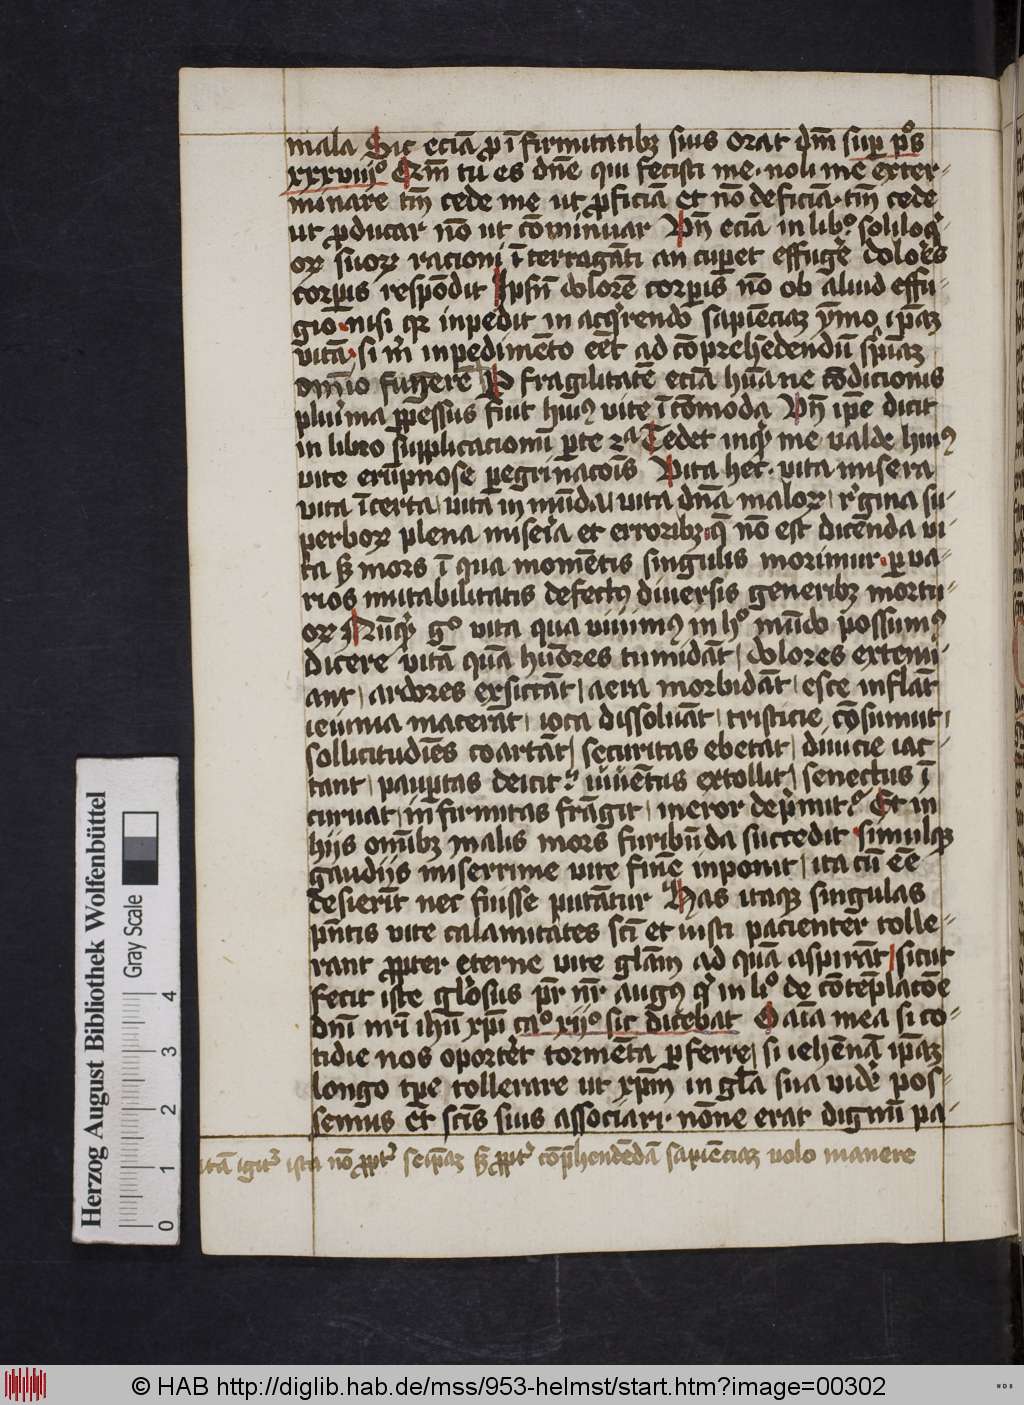 mala Sic eciā ꝓ īfirmitatibꝫ suis orat dm̄ sup̄ ps̄
xxxviijº Cr̄m tu es dn̄e qui fecisti me · noli me exter-
minare tm̄ cede me ut ꝓficiā et nō deficiā · tm̄ cede
ut ꝓducar nō ut cōminuar Vn̄ eciā in libº soliloq͛-
oꝝ suoꝝ racioni īterrogāti an cup̄et effuge᷑ dolo᷑es
corꝑis respōdit Ipsn̄ dolorē corꝑis nō ob aliud effu-
gio · nisi qꝛ inpedit in acq͛rendo sapiēciaꝫ ymo ip̄aꝫ
vitā · si m̄ inpedimēto eēt ad cōprehēdendū sp̄iaꝫ
omīo fugerē P fragilitatē eciā hūane cōdicionis
plu͛ima ꝑpessus fuit huiꝰ vite īcōmoda Vn̄ ip̄e dicit
in libro supplicacionū ꝑte 2ª Tedet inq͛ me valde huiꝰ
vite erūpnose ꝑegrinacōis Vita hec · vita misera
vita īcerta / vita īmūda / vita dn̄a maloꝝ / r͛gina su-
perboꝝ plena mise᷑ia et erroribꝫ · q̄ nō est dicenda vi-
ta sꝫ mors ī qua momētis singulis morimur · ꝑ va-
rios mutabilitatis defectꝰ diuersis generibꝫ mortu-
oꝝ Nūq͛ gº vita qua viuimꝰ in hº mūdo possumꝰ
dicere vitā quā hūores tumidāt / dolores extenu-
ant / ardores exsiccāt / aera morbidāt / esce inflāt
ieiunia macerāt / ioca dissoluāt / tristicie cōsumūt /
sollicitudīes coartāt / securitas ebetat / diuicie iac-
tant / pauꝑtas deicit · iuuētus extollit / senectus ī
curuat / infirmitas frāgit / meror dep͛mit · Et in
hijs omībꝫ malis mors furibūda succedit · simulqꝫ
gaudijs miserrime vite finē inponit / ita cū eē
desierīt nec fuisse putātur Has itaqꝫ singulas
pn̄tis vite calamitates sc̄i et iusti pacienter tolle-
rant ꝓpter eterne vite gl̄am ad quā aspirāt / sicut
fecit iste gl̄osus pr̄ nr̄ augꝰ q͛ in liº de cōtēplacōe
dn̄i nr̄i ihū xp̄i caº xijº sic dicebat O aīa mea si co-
tidie nos oporte᷑t tormēta ꝑferre / si iehēnā ip̄aꝫ
longo tp̄e tollerare ut xp̄m in gl̄a sua vide᷑ pos-
semus et sc̄is suis associari · nōne erat dignū pa-
itā igit͛ ista nō ꝓpt͛ seip̄aꝫ sꝫ ꝓpt͛ cōp̄hendēdā sapiēciaꝫ volo manere
Herzog August Bibliothek Wolfenbüttel
Gray Scale
0 1 2 3 4
© HAB http://diglib.hab.de/mss/953-helmst/start.htm?image=00302